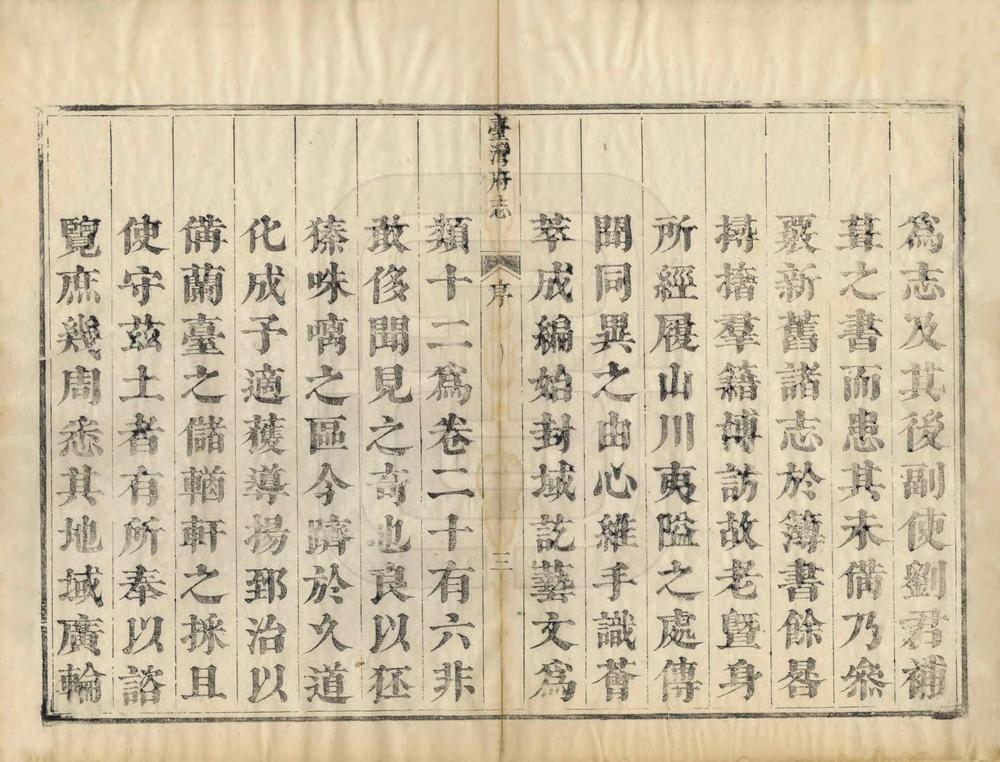 為志及其後副使劉君補
葺之書而患其未備乃叅
覈新舊諸志於簿書餘晷
摉摭羣籍博訪故老暨身
所經履山川夷隘之處傳
聞同異之由心維手識薈
萃成編始封域訖藝文為
臺灣府志
序
二
類十二為卷二十有六非
敢侈聞見之奇也良以狉
獉味噣之區今躋於久道
化成予適䕶導揚郅治以
備蘭臺之儲輶軒之採且
使守茲土者有所奉以諮
覽庶幾周悉其地域廣輪